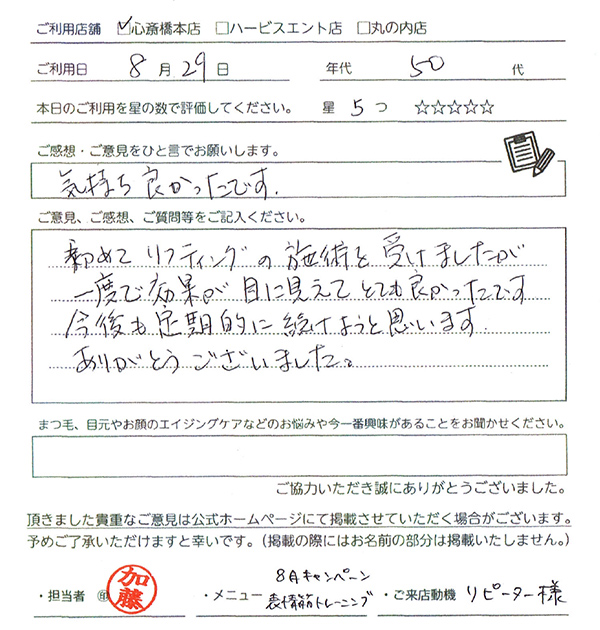 ご利用店舗 ☑心斎橋本店 □ハービスエント店 □丸の内店
ご利用日 8月29日 年代 50代
本日のご利用を星の数で評価してください。 星 5つ ☆☆☆☆☆
ご感想・ご意見をひと言でお願いします。
気持ち良かったです.
ご意見、ご感想、ご質問等をご記入ください。
初めてリフティングの施術を受けましたが
一度で効果が目に見えてとても良かったです
今後も定期的に続けようと思います.
ありがとうございました。
まつ毛、目元やお顔のエイジングケアなどのお悩みや今一番興味があることをお聞かせください。
ご協力いただき誠にありがとうございました。
頂きました貴重なご意見は公式ホームページにて掲載させていただく場合がございます。
予めご了承いただけますと幸いです。（掲載の際にはお名前の部分は掲載いたしません。）
・担当者 ㊞ 加藤 ・メニュー 8月キャンペーン 表情筋トレーニング ・ご来店動機 リピーター様